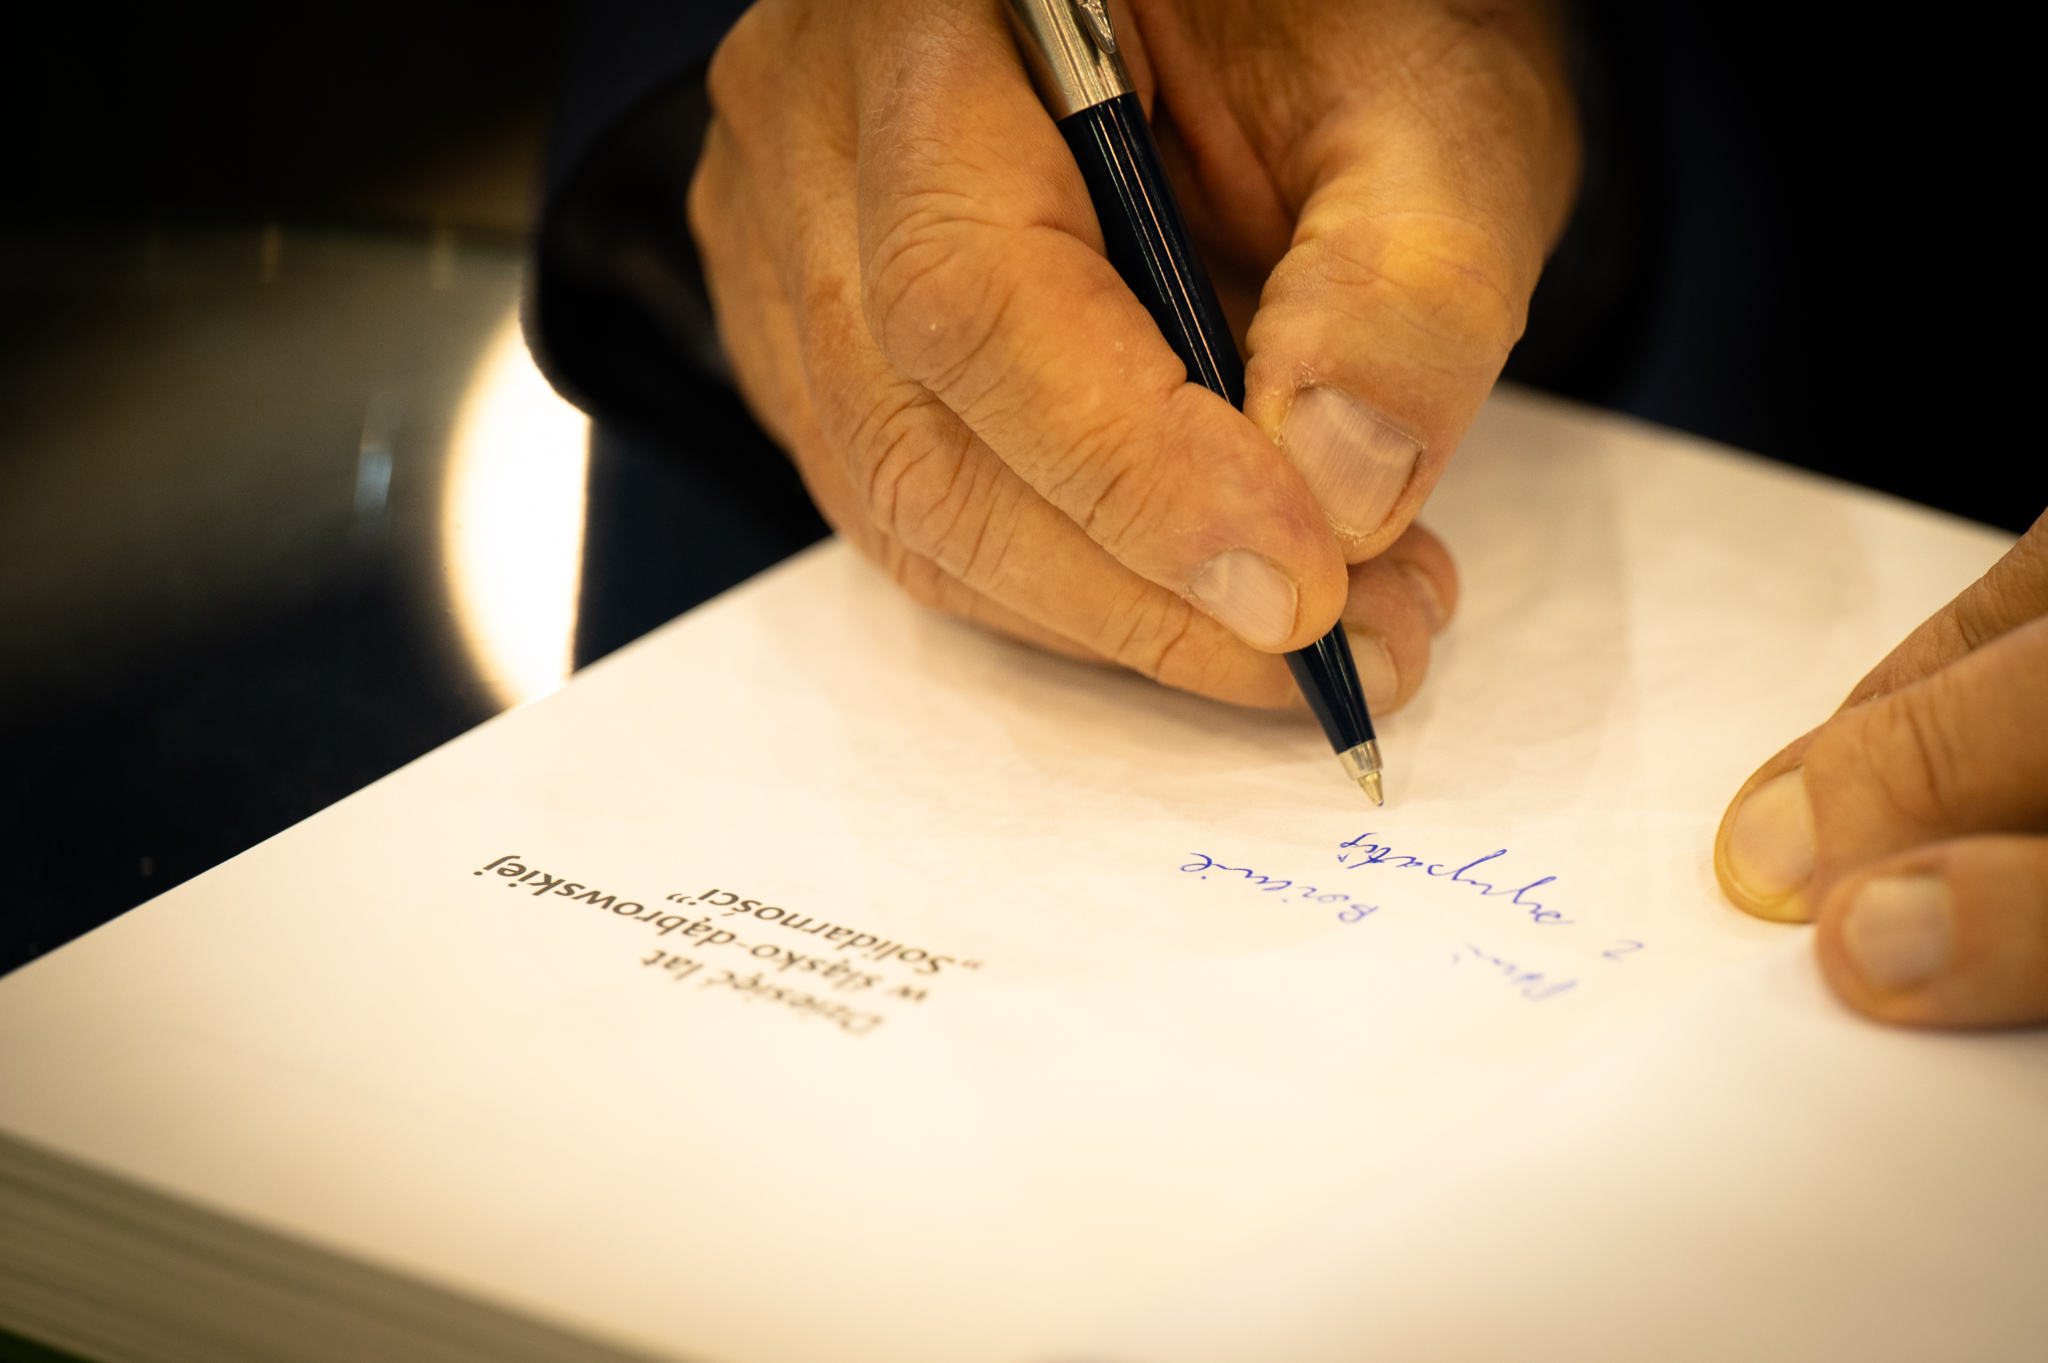 Dziesięć lat
w śląsko-dąbrowskiej
„Solidarności”
Pani
Bożenie
z sympatią